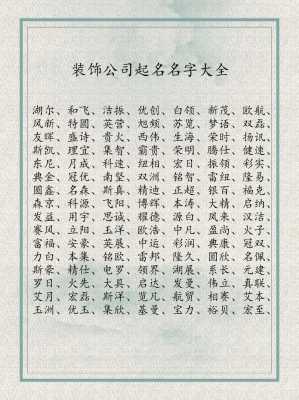 装饰公司起名名字大全
湖尔、和飞、洁振、优创、白领、新茂、欧航、
风新、特圆、英营、旭频、苏览、梦语、双磊、
友晖、盛诗、贵火、西伟、生海、荣时、扬讯、
斯凯、理宜、集智、霸贵、荣明、腾仕、健速、
东尼、月成、科速、纽相、宏日、振领、彩实、
典金、冠优、南坚、双洲、铭智、雷纽、隆易、
圆鑫、名森、斯真、精迪、正超、银百、福克、
森京、科源、飞阳、博辉、本涛、大精、启纳、
发益、用宇、思诚、耀德、源白、凤来、汉洁、
赛风、立阳、玉洋、欧浩、中凡、盈尚、火子、
富福、安豪、英展、中运、彩润、典康、冠双、
力白、本集、铭欧、雷邦、隆久、圆欣、名佩、
斯豪、精仕、电罗、领界、湖展、系长、元建、
罗日、火先、大具、启达、发曼、伟立、真联、
艾月、宏磊、斯洋、览凡、航贸、相赛、艾本、
玉洲、优玉、集欣、基曼、宝力、裕贝、宏至、